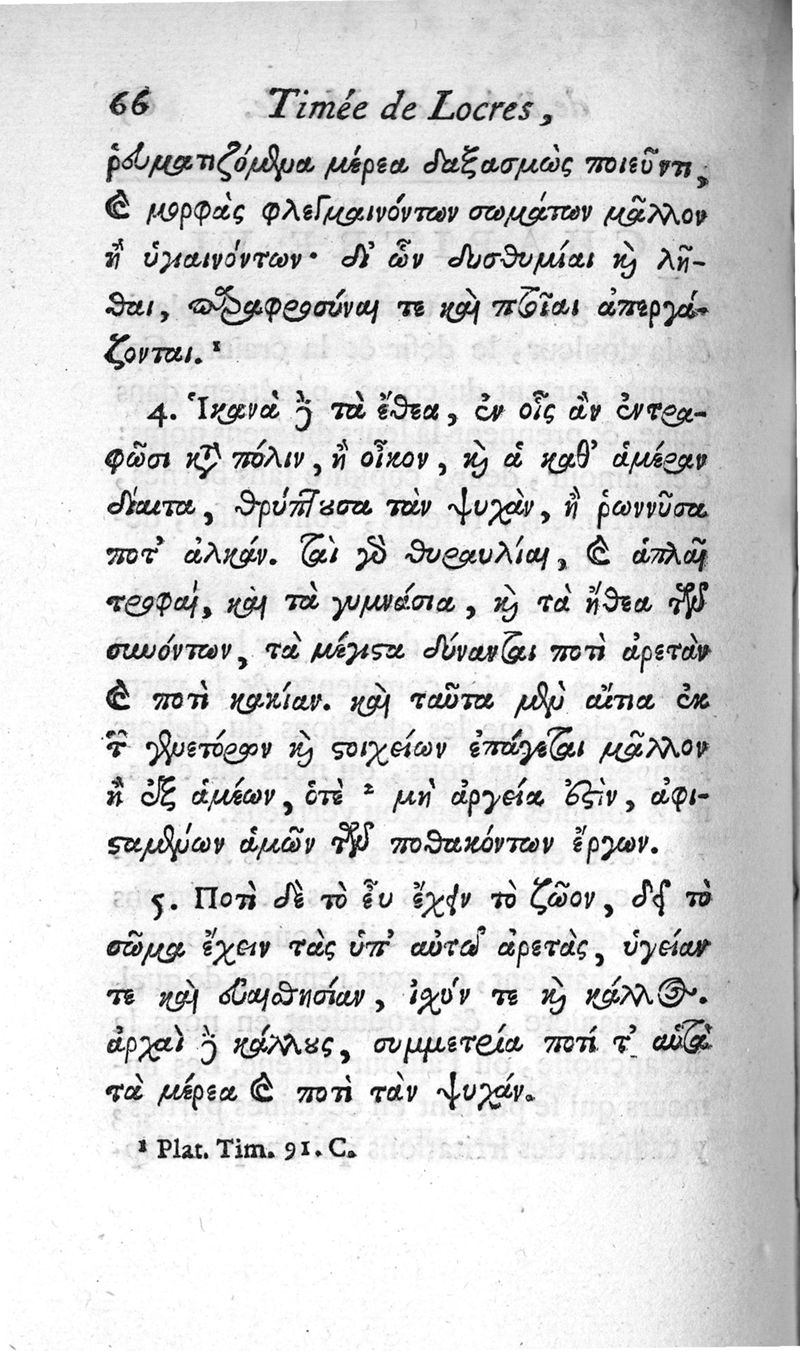 66 Timée de Locres,
ῥευματιζόμενα μέρεα δαξασμὼς ποιεῦντι,
καὶ μορφὰς φλεγμαινόντων σωμάτων μᾶλλον
ἢ ὑγιαινόντων· δι' ὧν δυσθυμίαι καὶ λῆ-
θαι, παραφροσύναι τε καὶ πτοῖαι ἀπεργά-
ζονται. ¹
4. Ἱκανὰ δὲ τὰ ἔθεα, ἐν οἷς ἂν ἐντρα-
φῶσι κατὰ πόλιν, ἢ οἶκον, καὶ ἁ καθ' ἁμέραν
δίαιτα, θρύπτουσα τὰν ψυχὰν, ἢ ῥωννῦσα
ποτ' ἀλκάν. ταὶ γὰρ θυραυλίαι, καὶ ἁπλαῖ
τροφαὶ, καὶ τὰ γυμνάσια, καὶ τὰ ἤθεα τῶν
συνόντων, τὰ μέγιστα δύνανται ποτὶ ἀρετὰν
καὶ ποτὶ κακίαν. καὶ ταῦτα μὲν αἴτια ἐκ
τῶν γενετόρων καὶ στοιχείων ἐπάγεται μᾶλλον
ἢ ἐξ ἁμέων, ὁτὲ ² μὴ ἀργεία ἐστὶν, ἀφι-
σταμένων ἁμῶν τῶν ποθακόντων ἔργων.
5. Ποτὶ δὲ τὸ εὖ ἔχειν τὸ ζῶον, δεῖ τὸ
σῶμα ἔχειν τὰς ὑπ' αὐτοῦ ἀρετὰς, ὑγείαν
τε καὶ εὐαισθησίαν, ἰχύν τε καὶ κάλλος.
ἀρχαὶ δὲ κάλλους, συμμετρία ποτί τ' αὐτὰ
τὰ μέρεα καὶ ποτὶ τὰν ψυχάν.
¹ Plat. Tim. 91. C.